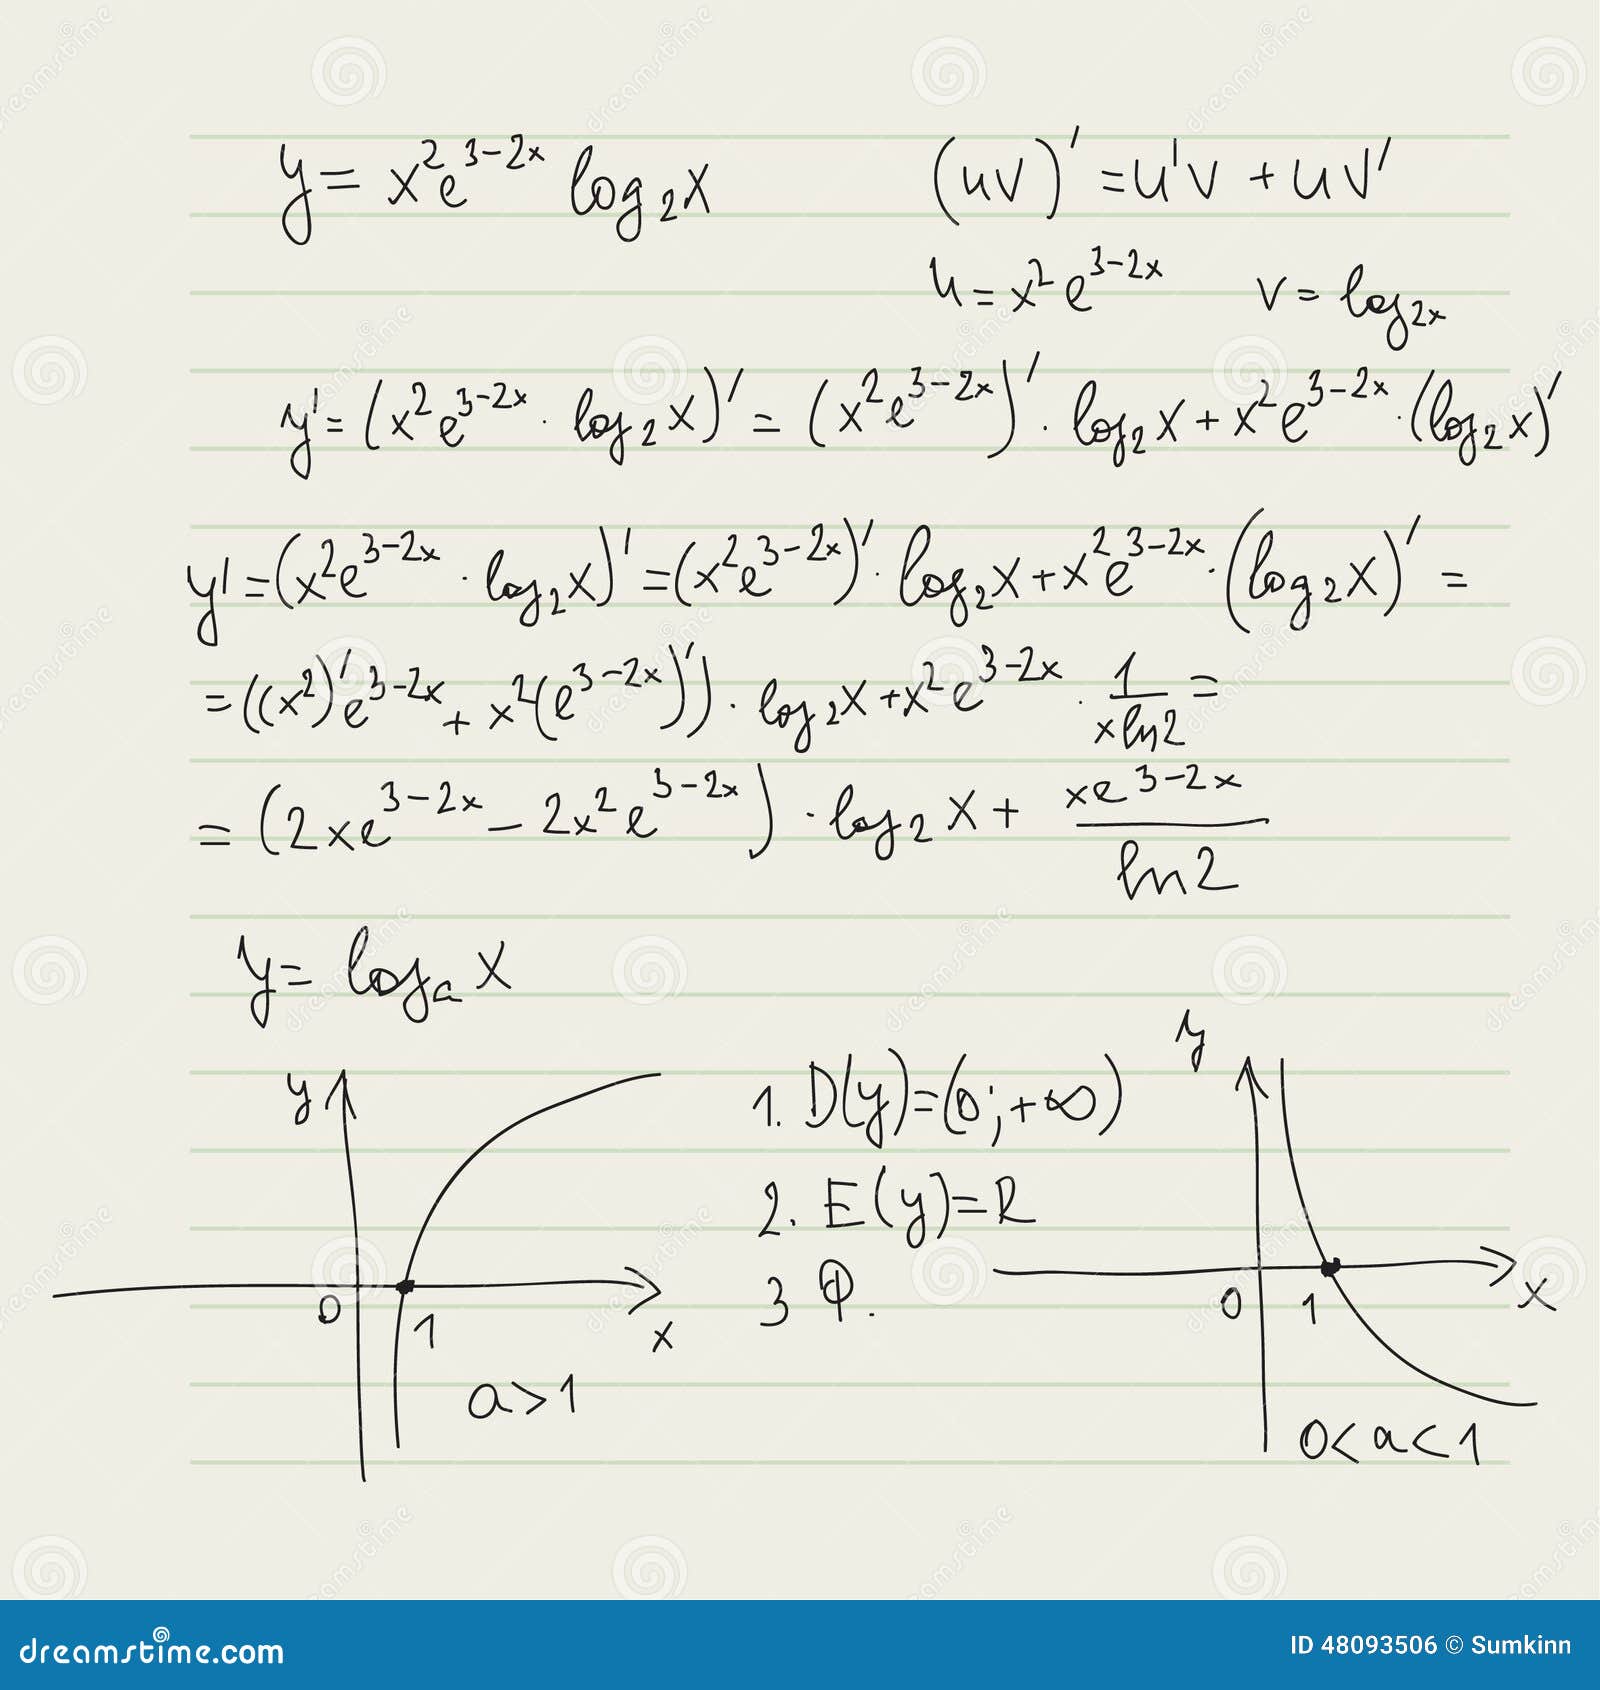 y = x²e³⁻²ˣ log₂x (uv)' = u'v + uv'
u = x²e³⁻²ˣ v = log₂ₓ
y' = (x²e³⁻²ˣ · log₂x)' = (x²e³⁻²ˣ)' · log₂x + x²e³⁻²ˣ · (log₂x)'
y' = (x²e³⁻²ˣ · log₂x)' = (x²e³⁻²ˣ)' · log₂x + x²e³⁻²ˣ · (log₂x)' =
= ((x²)'e³⁻²ˣ + x²(e³⁻²ˣ)') · log₂x + x²e³⁻²ˣ · 1/(x ln2) =
= (2xe³⁻²ˣ − 2x²e³⁻²ˣ) · log₂x + xe³⁻²ˣ/ln2
y = logₐ x
y
1. D(y)=(0;+∞)
y
2. E(y)=R
3 φ.
0 1 x
0 1 x
a>1
0<a<1
dreamstime.com ID 48093506 © Sumkinn